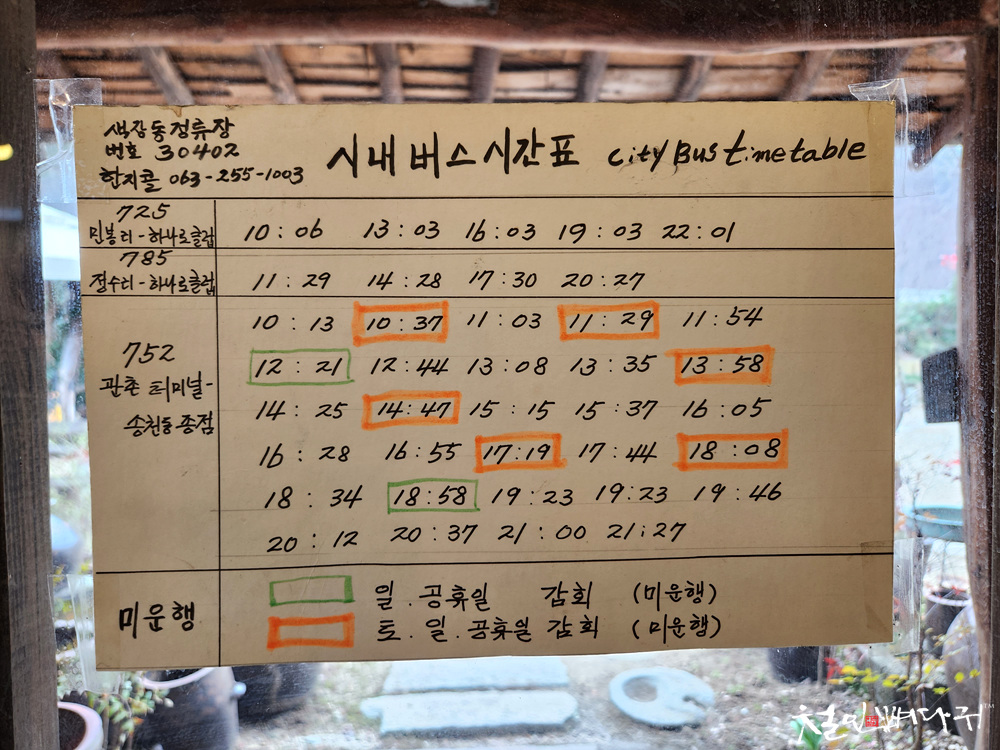 색장동정류장
번호 30402
한지콜 063-255-1003
시내버스시간표 city Bus timetable
725
민봉리-하나로클럽
10:06 13:03 16:03 19:03 22:01
785
절수리-하나로클럽
11:29 14:28 17:30 20:27
752
관촌 터미널-
송천동종점
10:13 10:37 11:03 11:29 11:54
12:21 12:44 13:08 13:35 13:58
14:25 14:47 15:15 15:37 16:05
16:28 16:55 17:19 17:44 18:08
18:34 18:58 19:23 19:23 19:46
20:12 20:37 21:00 21:27
미운행
일.공휴일 감회 (미운행)
토.일.공휴일 감회 (미운행)